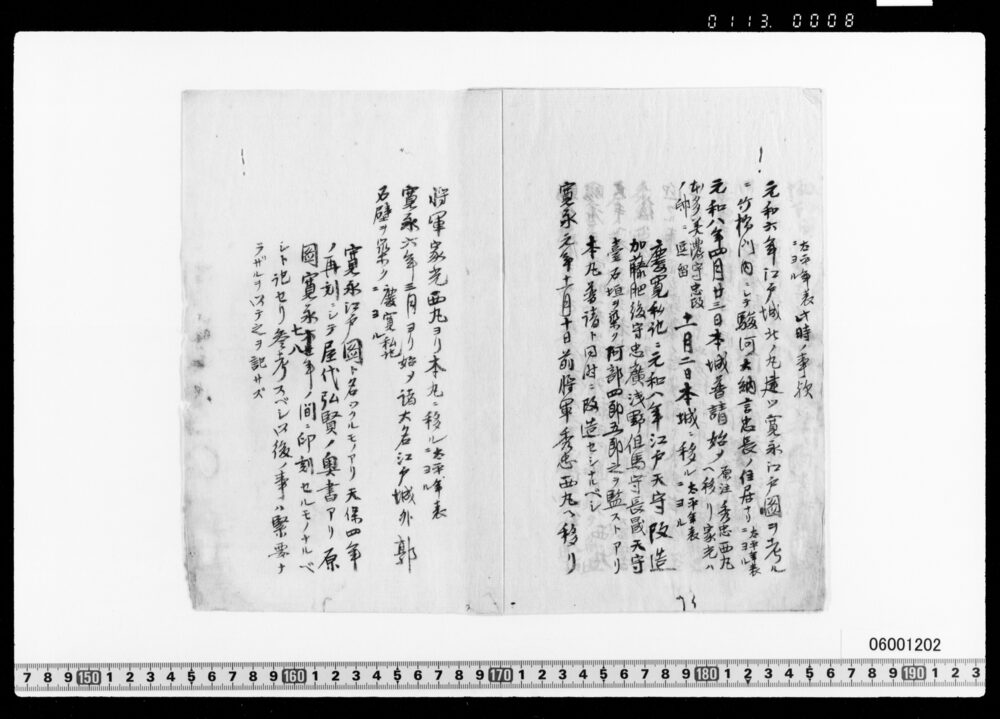 0113.0008
太平年表此時ノ事故
ニヨル
元和六年江戸城北ノ丸建ツ寛永江戸圖ヲ考ル
ニ竹橋門内ニシテ駿河大納言忠長ノ住居ナリ太平年表
ニヨル
元和八年四月廿三日本城普請始ヲ原注秀忠西丸
ヘ移リ家光ハ
本多美濃守忠政
ノ邸ニ逗留 十一月二日本城ニ移ル太平年表
ニヨル
慶寛私記ニ元和八年江戸天守改造
加藤肥後守忠廣浅野但馬守長晟天守
臺石垣ヲ築ク阿部四郎五郎之ヲ監ストアリ
本丸普請ト同時ニ改造セシナルベシ
寛永元年十一月十日前将軍秀忠西丸ヘ移リ
将軍家光西丸ヨリ本丸ニ移ル太平年表
ニヨル
寛永六年三月ヨリ始ヲ諸大名江戸城外郭
石壁ヲ築ク慶寛私記
ニヨル
寛永江戸圖ト名ツクルモノアリ天保四年
ノ再刻ニシテ屋代弘賢ノ奥書アリ原
圖寛永七八年ノ間ニ印刻セルモノナルベ
シト記セリ参考スベシ以後ノ事ハ緊要ナ
ラザルヲ以テ之ヲ記サズ
06001202
7 8 9 150 1 2 3 4 5 6 7 8 9 160 1 2 3 4 5 6 7 8 9 170 1 2 3 4 5 6 7 8 9 180 1 2 3 4 5 6 7 8 9 190 1 2 3